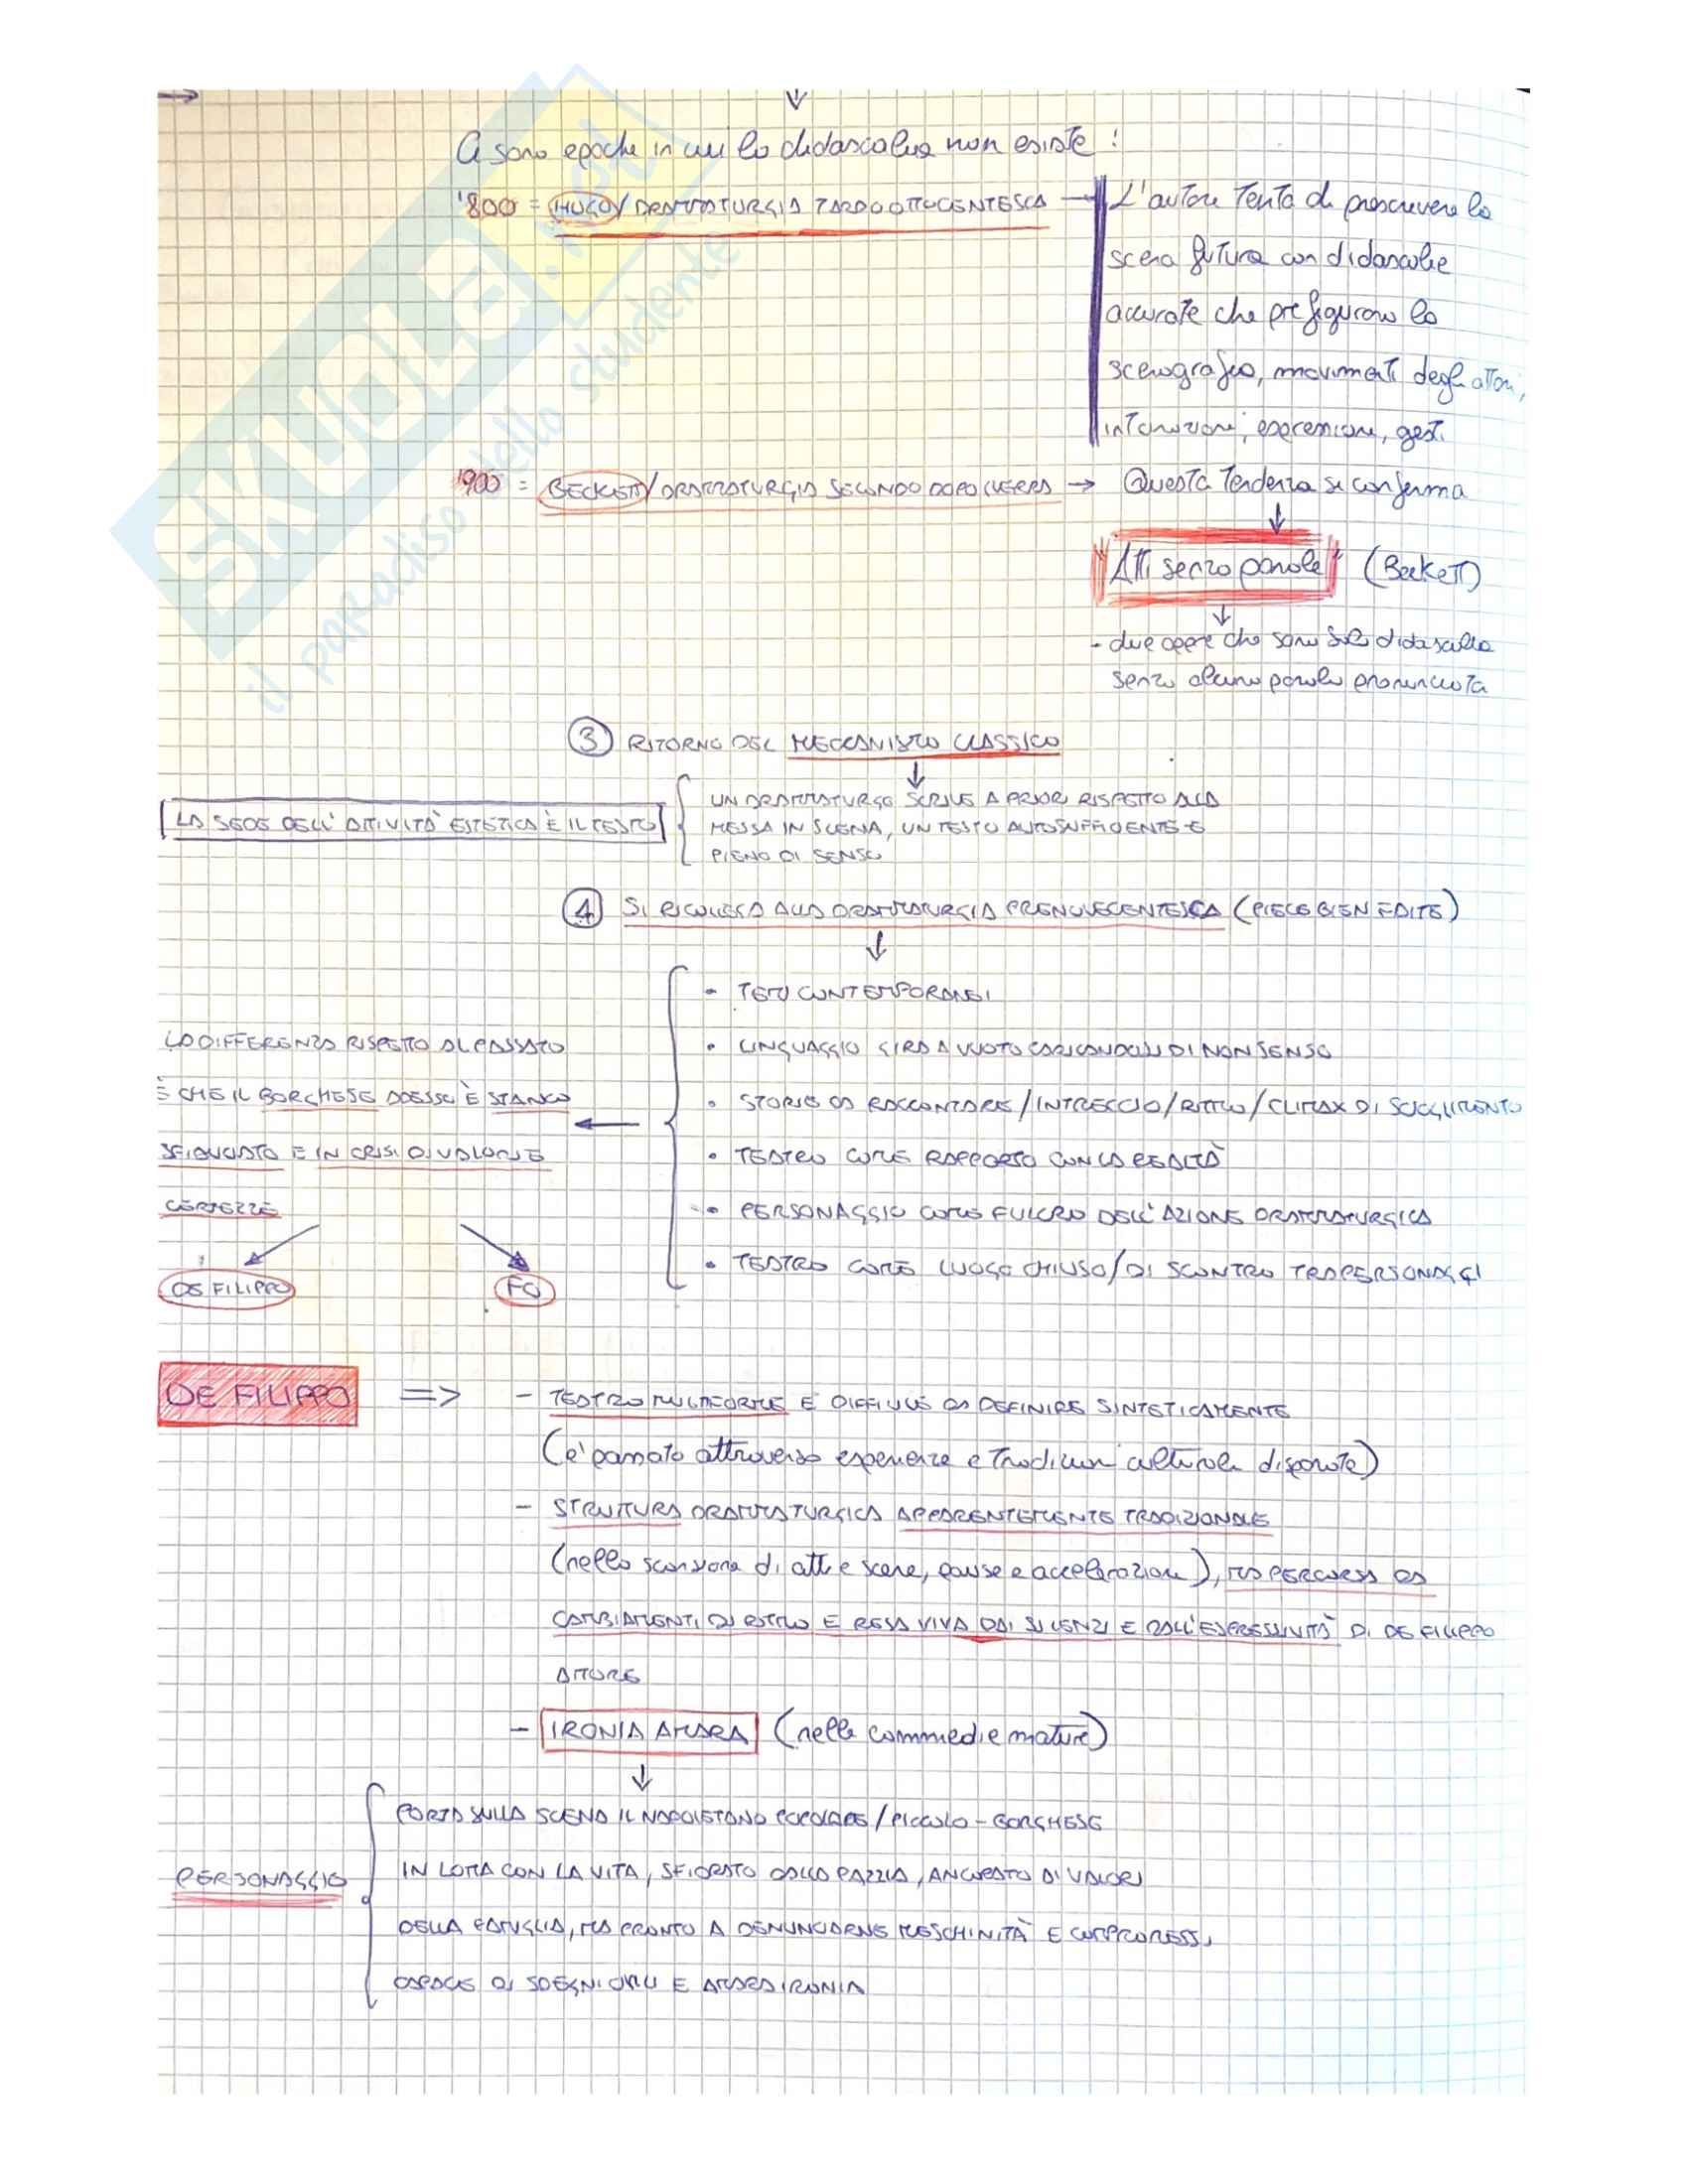 Ci sono epoche in cui la didascalia non esiste :
'800 = HUGO/ DRAMMATURGIA TARDO OTTOCENTESCA → L'autore tenta di prescrivere la
scena futura con didascalie
accurate che prefigurano la
scenografia, movimenti degli attori,
intonazioni, espressione, gesti
'900 = BECKETT/ DRAMMATURGIA SECONDO DOPOGUERRA → Questa tendenza si conferma
"Atti senza parole" (Beckett)
- due opere che sono solo didascalia
senza alcuna parola pronunciata
3 RITORNO DEL MECCANISMO CLASSICO
LA SEDE DELL'ATTIVITÀ ESTETICA È IL TESTO
UN DRAMMATURGO SCRIVE A PRIORI RISPETTO ALLA
MESSA IN SCENA, UN TESTO AUTOSUFFICIENTE E
PIENO DI SENSO
4 SI RICOLLEGA ALLA DRAMMATURGIA PRENOVECENTESCA (PIECE BIEN FAITE)
• TEMI CONTEMPORANEI
• LINGUAGGIO GIRA A VUOTO CARICANDOSI DI NON SENSO
• STORIE DA RACCONTARE/INTRECCIO/RITMO/CLIMAX DI SCIOGLIMENTO
• TEATRO COME RAPPORTO CON LA REALTÀ
• PERSONAGGIO COME FULCRO DELL'AZIONE DRAMMATURGICA
• TEATRO COME LUOGO CHIUSO/DI SCONTRO TRA PERSONAGGI
LA DIFFERENZA RISPETTO AL PASSATO
È CHE IL BORGHESE ADESSO È STANCO
SFIDUCIATO E IN CRISI DI VALORI E
CERTEZZE
DE FILIPPO
FO
DE FILIPPO => - TEATRO MULTIFORME E DIFFICILE DA DEFINIRE SINTETICAMENTE
(è passato attraverso esperienze e tradizioni culturali disparate)
- STRUTTURA DRAMMATURGICA APPARENTEMENTE TRADIZIONALE
(nella scansione di atti e scene, pause e accelerazioni), MA PERCORSA DA
CAMBIAMENTI DI RITMO E RESA VIVA DAI SILENZI E DALL'ESPRESSIVITÀ DI DE FILIPPO
ATTORE
- IRONIA AMARA (nelle commedie mature)
PERSONAGGIO
PORTA SULLA SCENA IL NAPOLETANO POPOLARE/PICCOLO-BORGHESE
IN LOTTA CON LA VITA, SFIORATO DALLA PAZZIA, ANCORATO AI VALORI
DELLA FAMIGLIA, MA PRONTO A DENUNCIARNE MESCHINITÀ E COMPROMESSI,
CAPACE DI SDEGNI CIVILI E AMARA IRONIA
SKUOLA.net
il paradiso dello studente